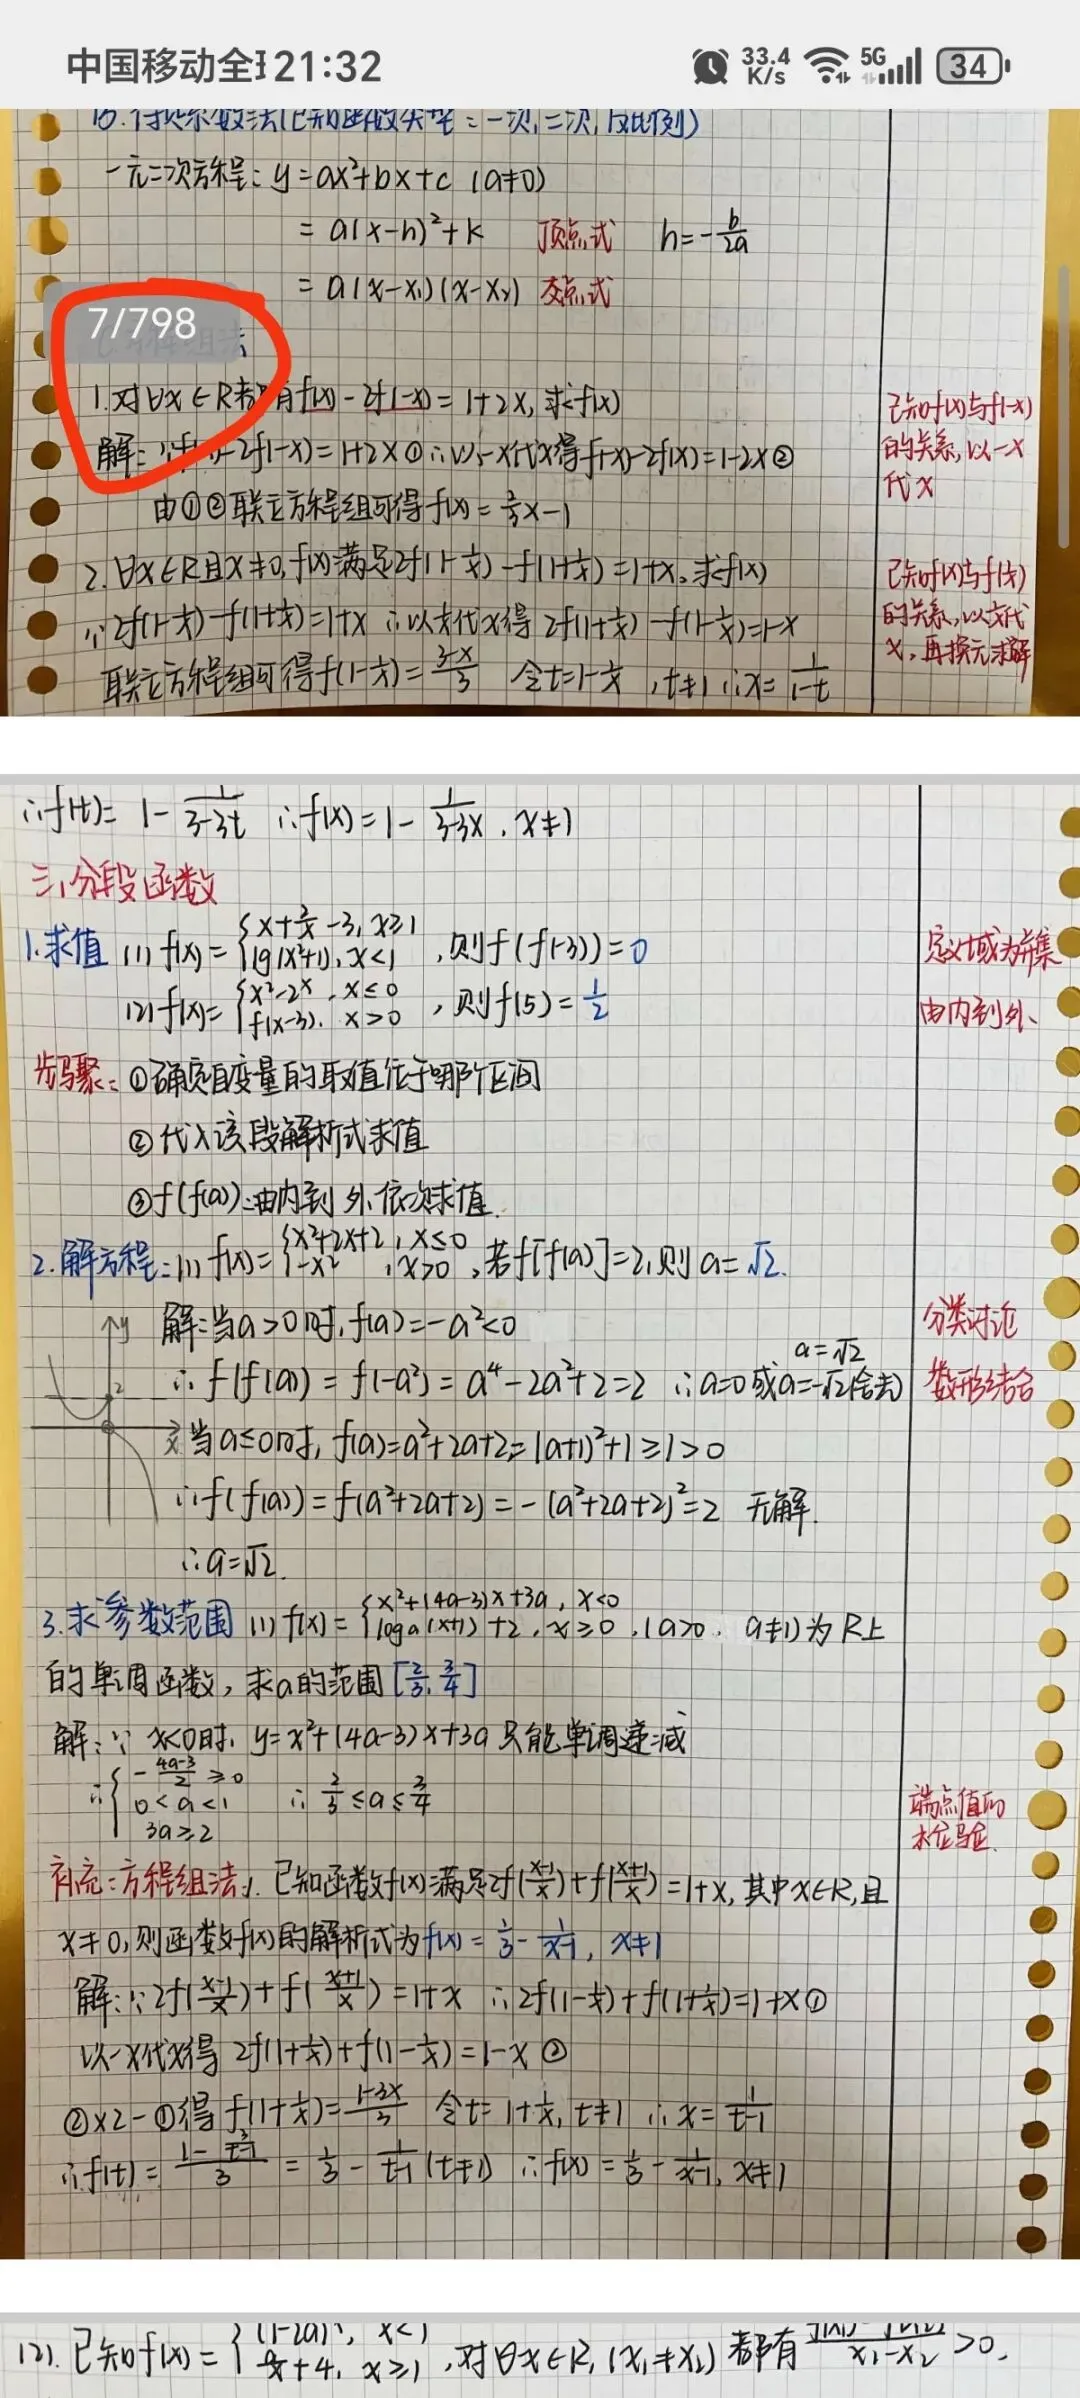 中国移动全 21:32 33.4 K/s 5G 34
b.待定系数法(已知函数类型:一次,二次,反比例)
一元二次方程: y=ax²+bx+c (a≠0)
=a(x-h)²+k 顶点式 h=-b/2a
=a(x-x₁)(x-x₂) 交点式
7/798
1.对∀x∈R都有f(x)-2f(-x)=1+2x,求f(x)
已知f(x)与f(-x)
的关系,以-x
代x
解:∵f(x)-2f(-x)=1+2x① ∴以-x代x得f(-x)-2f(x)=1-2x②
由①②联立方程组可得f(x)=2/3x-1
2.∀x∈R且x≠0,f(x)满足2f(1-1/x)-f(1+1/x)=1+x,求f(x)
已知f(x)与f(1/x)
的关系,以1/x代
x,再换元求解
∵2f(1-1/x)-f(1+1/x)=1+x ∴以x代x得 2f(1+1/x)-f(1-1/x)=1-x
联立方程组可得f(1-1/x)=3+x/3 令t=1-1/x,t≠1 ∴x=1/1-t
∴f(t)=1-1/3-3t ∴f(x)=1-1/3-3x,x≠1
三,分段函数
1.求值 (1) f(x)={x+2/x-3, x≥1
lg(x²+1), x<1 ,则f(f(-3))=0
定义域为并集
(2) f(x)={x²-2ˣ, x≤0
f(x-3), x>0 ,则f(5)=1/2
由内到外、
步骤:①确定自变量的取值位于哪个区间
②代入该段解析式求值
③f(f(a)):由内到外依次求值.
2.解方程:(1) f(x)={x²+2x+2, x≤0
-x², x>0 ,若f[f(a)]=2,则a=√2.
解:当a>0时,f(a)=-a²<0
分类讨论
数形结合
∴f(f(a))=f(-a²)=a⁴-2a²+2=2 ∴a=0或a=-√2(舍去) a=√2
y
2
x
当a≤0时,f(a)=a²+2a+2=(a+1)²+1≥1>0
∴f(f(a))=f(a²+2a+2)=-(a²+2a+2)²=2 无解.
∴a=√2.
3.求参数范围 (1) f(x)={x²+(4a-3)x+3a, x<0
logₐ(x+1)+2, x≥0 ,(a>0, a≠1)为R上
的单调函数,求a的范围[2/3,3/4]
解:∵x<0时, y=x²+(4a-3)x+3a只能单调递减
∴{-4a-3/2≥0
0<a<1 ∴2/3≤a≤3/4
3a≥2
端点值的
补充:方程组法 1.已知函数f(x)满足2f(x-1/x)+f(x+1/x)=1+x,其中x∈R,且
x≠0,则函数f(x)的解析式为f(x)=1/3-1/x-1, x≠1
解:∵2f(x-1/x)+f(x+1/x)=1+x ∴2f(1-1/x)+f(1+1/x)=1+x①
以-x代x得 2f(1+1/x)+f(1-1/x)=1-x②
②×2-①得f(1+1/x)=1-3x/3 令t=1+1/x, t≠1 ∴x=1/t-1
∴f(t)=1-3/t-1/3=1/3-1/t-1(t≠1) ∴f(x)=1/3-1/x-1, x≠1
(2).已知f(x)={(1-2a)ˣ, x<1
a/x+4, x≥1 ,对∀x∈R,(x₁≠x₂)都有f(x₁)-f(x₂)/x₁-x₂>0,